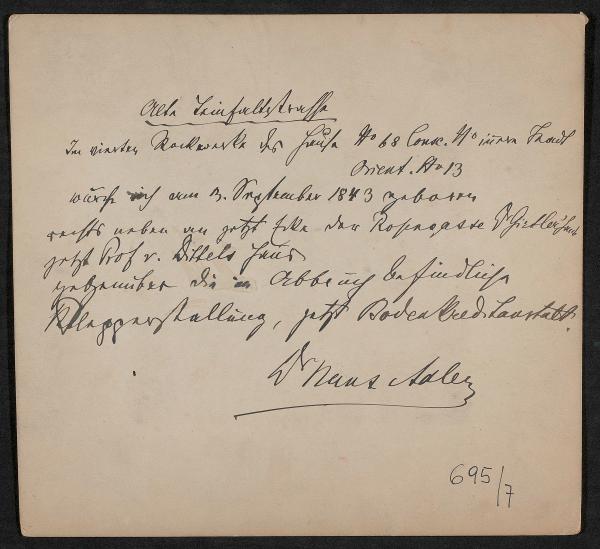 Alte Teinfaltstrasse
Im vierten Stockwerke des Hauses No 68 Consk. No innere Stadt
Orient. No 13
wurde ich am 3. September 1843 geboren
rechts neben an jetzt Ecke der Rosengasse Dr
jetzt Prof v. Dittels Haus
gegenüber die in Abbruch befindliche
Kleppperstallung, jetzt Bodenkreditanstalt.
Dr Hans Adler
695/7